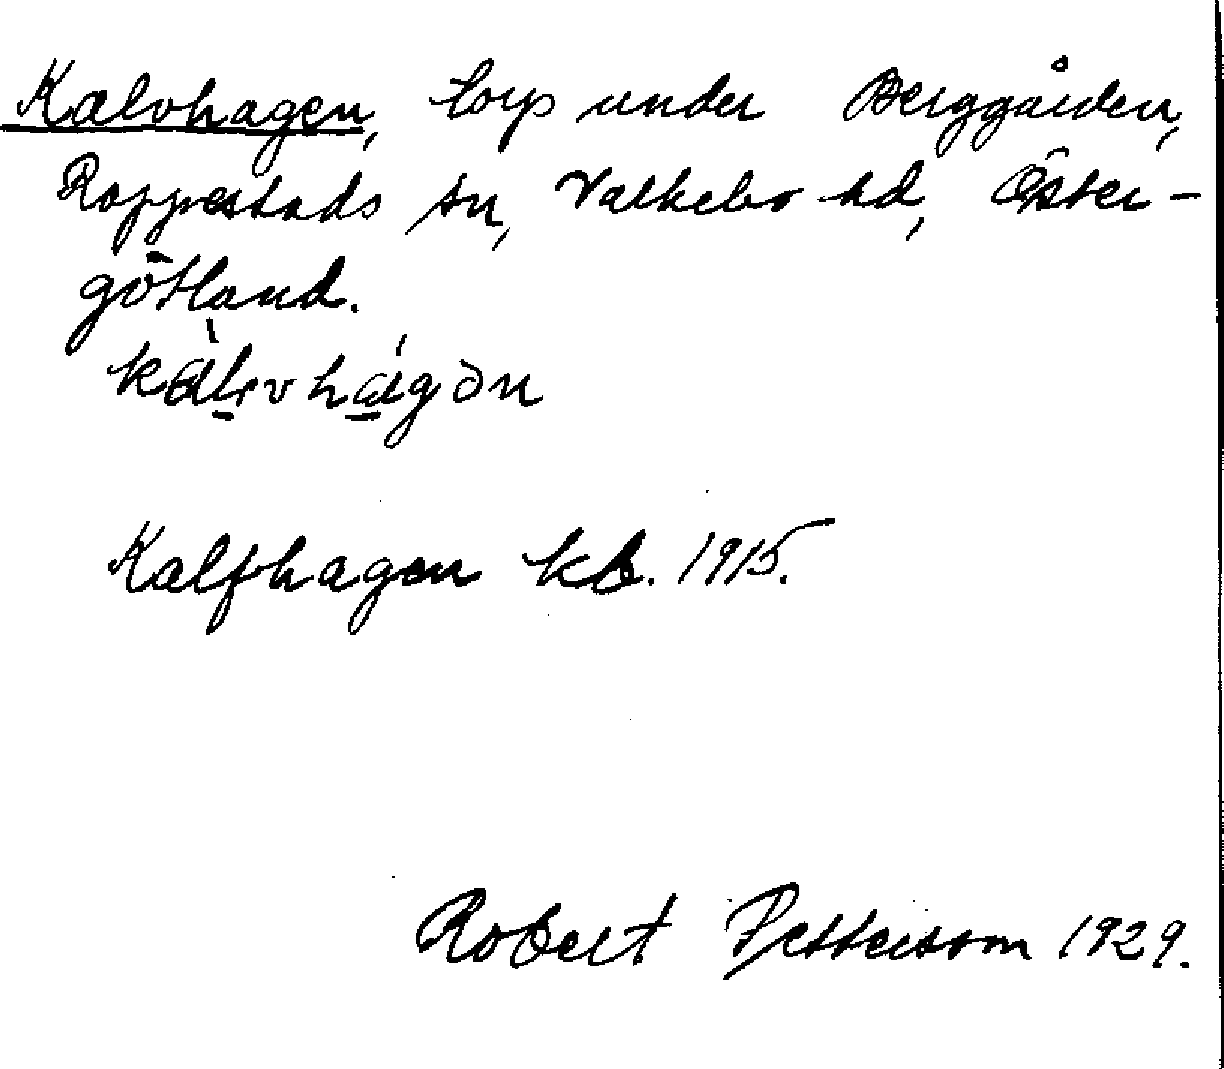 Kalvhagen, torp under Berggården,
Rappestads sn, Valkebo hd, Öster-
götland.
Kalfhagen kb. 1915.
Robert Pettersson 1929.